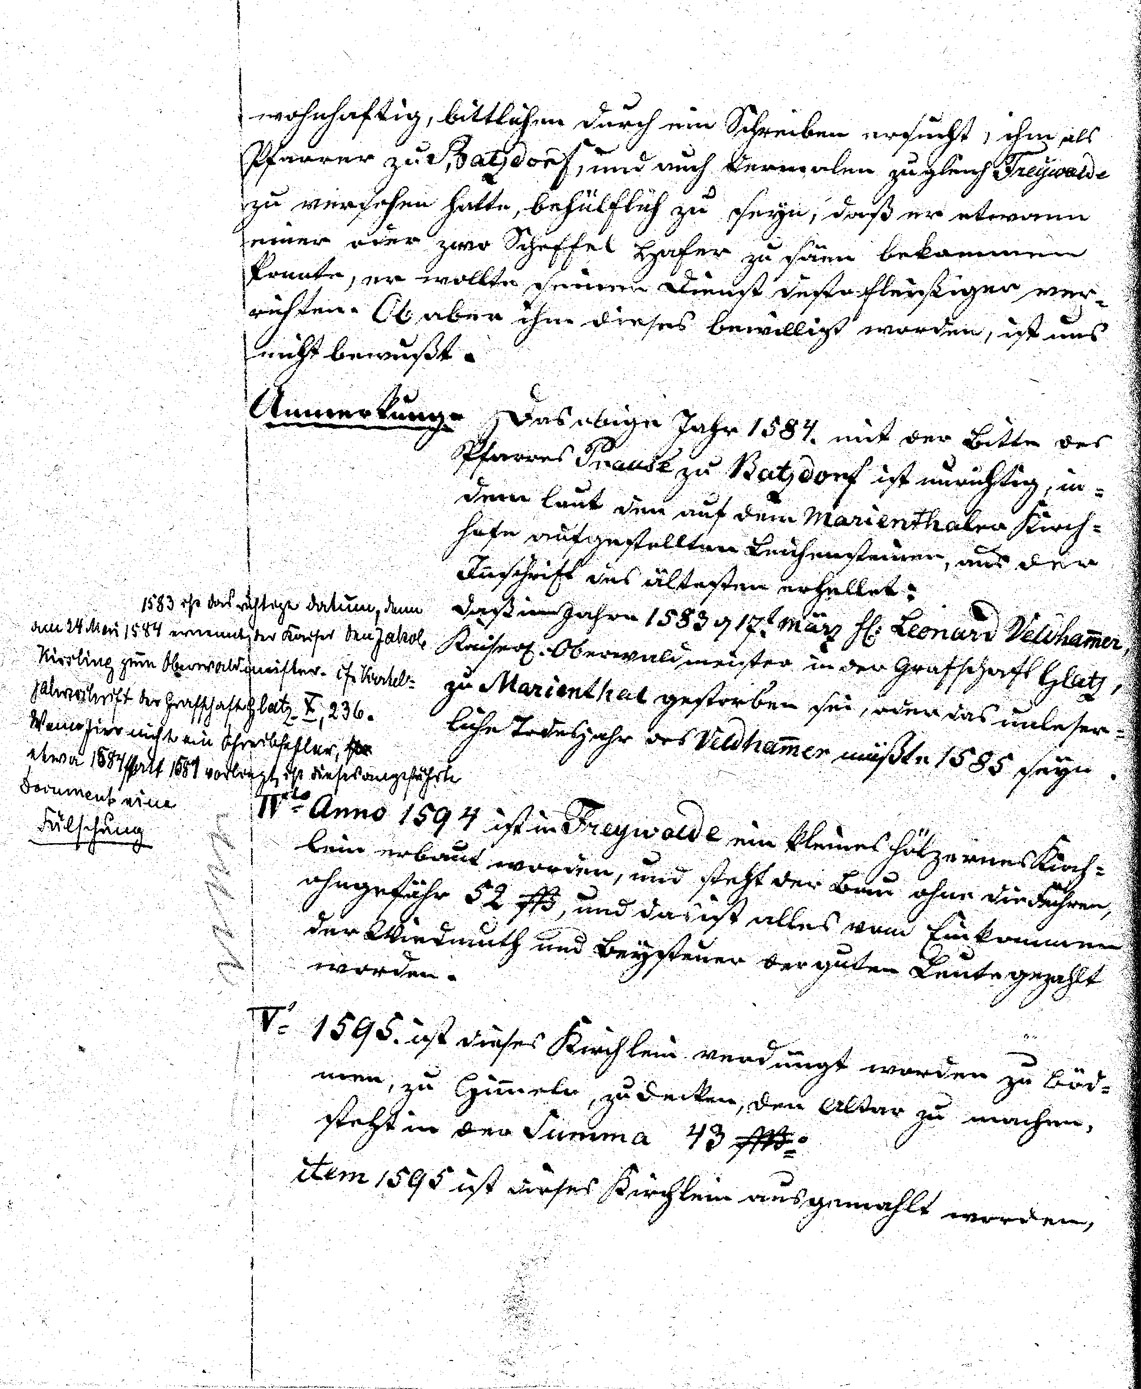 wohnhaftig, bittlichen durch ein Schreiben ersucht, ihm als
Pfarrer zu Batzdorf, und auch dermalen zugleich Freywalde
zu versehen hatte, behülflich zu seyn, daß er etwann
einer oder zwo Scheffel Haafer zu säen bekommen
konnte, er wollte seinen Dienst desto fleißiger ver-
richten. Ob aber ihm dieses bewilligt worden, ist uns
nicht bewußt.
Anmerkung. Das obige Jahr 1584. mit der Bitte des
Pfarres Prause zu Batzdorf ist unrichtig, in-
dem laut den auf dem Marienthaler Kirch-
hofe aufgestellten Leichensteinen, aus der
Inschrift des ältesten erhellet:
daß im Jahre 1583 17t. März H: Leonard Veldham̄er,
Kaiserl. Oberwaldmeister in der Grafschaft Glatz,
zu Marienthal gestorben sei, oder das unleser-
liche Todesjahr des Veldham̄er müßte 1585 seyn.
1583 ist das richtige Datum, denn
am 24 Mai 1584 ernennt der Kaiser den Jakob
Kissling zum Oberwaldmeister. cf.
jahresschrift der Grafschaft Glatz X, 236.
Wenn hier nicht ein Schreibfehler,
etwa 1584 statt 1581 vorliegt, ist dieses angeführte
Document eine
Fälschung
IVto Anno 1594 ist in Freywalde ein kleines hölzernes Kirch-
lein erbaut worden, und steht der Bau ohne die Fuhren,
ohngefähr 52 , und das ist alles vom Einkommen
der Wiedmuth und Beysteuer der guten Leute gezahlt
worden.
V. 1595. ist dieses Kirchlein verdingt worden zu böd-
men, zu himmeln, zu decken, den Altar zu machen,
steht in der Summa 43
item 1595 ist dieses Kirchlein ausgemahlt worden,